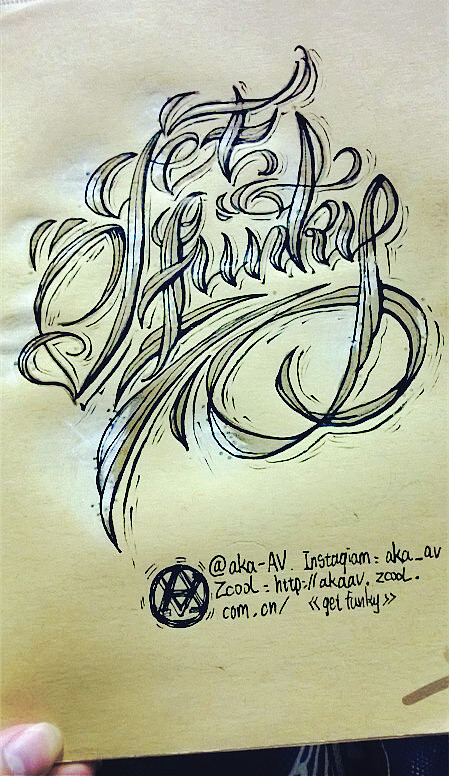 get
funky
AV
@aka-AV. Instagiam: aka_av
Zcool: http://akaav.zcool.
com.cn/ 《get funky》